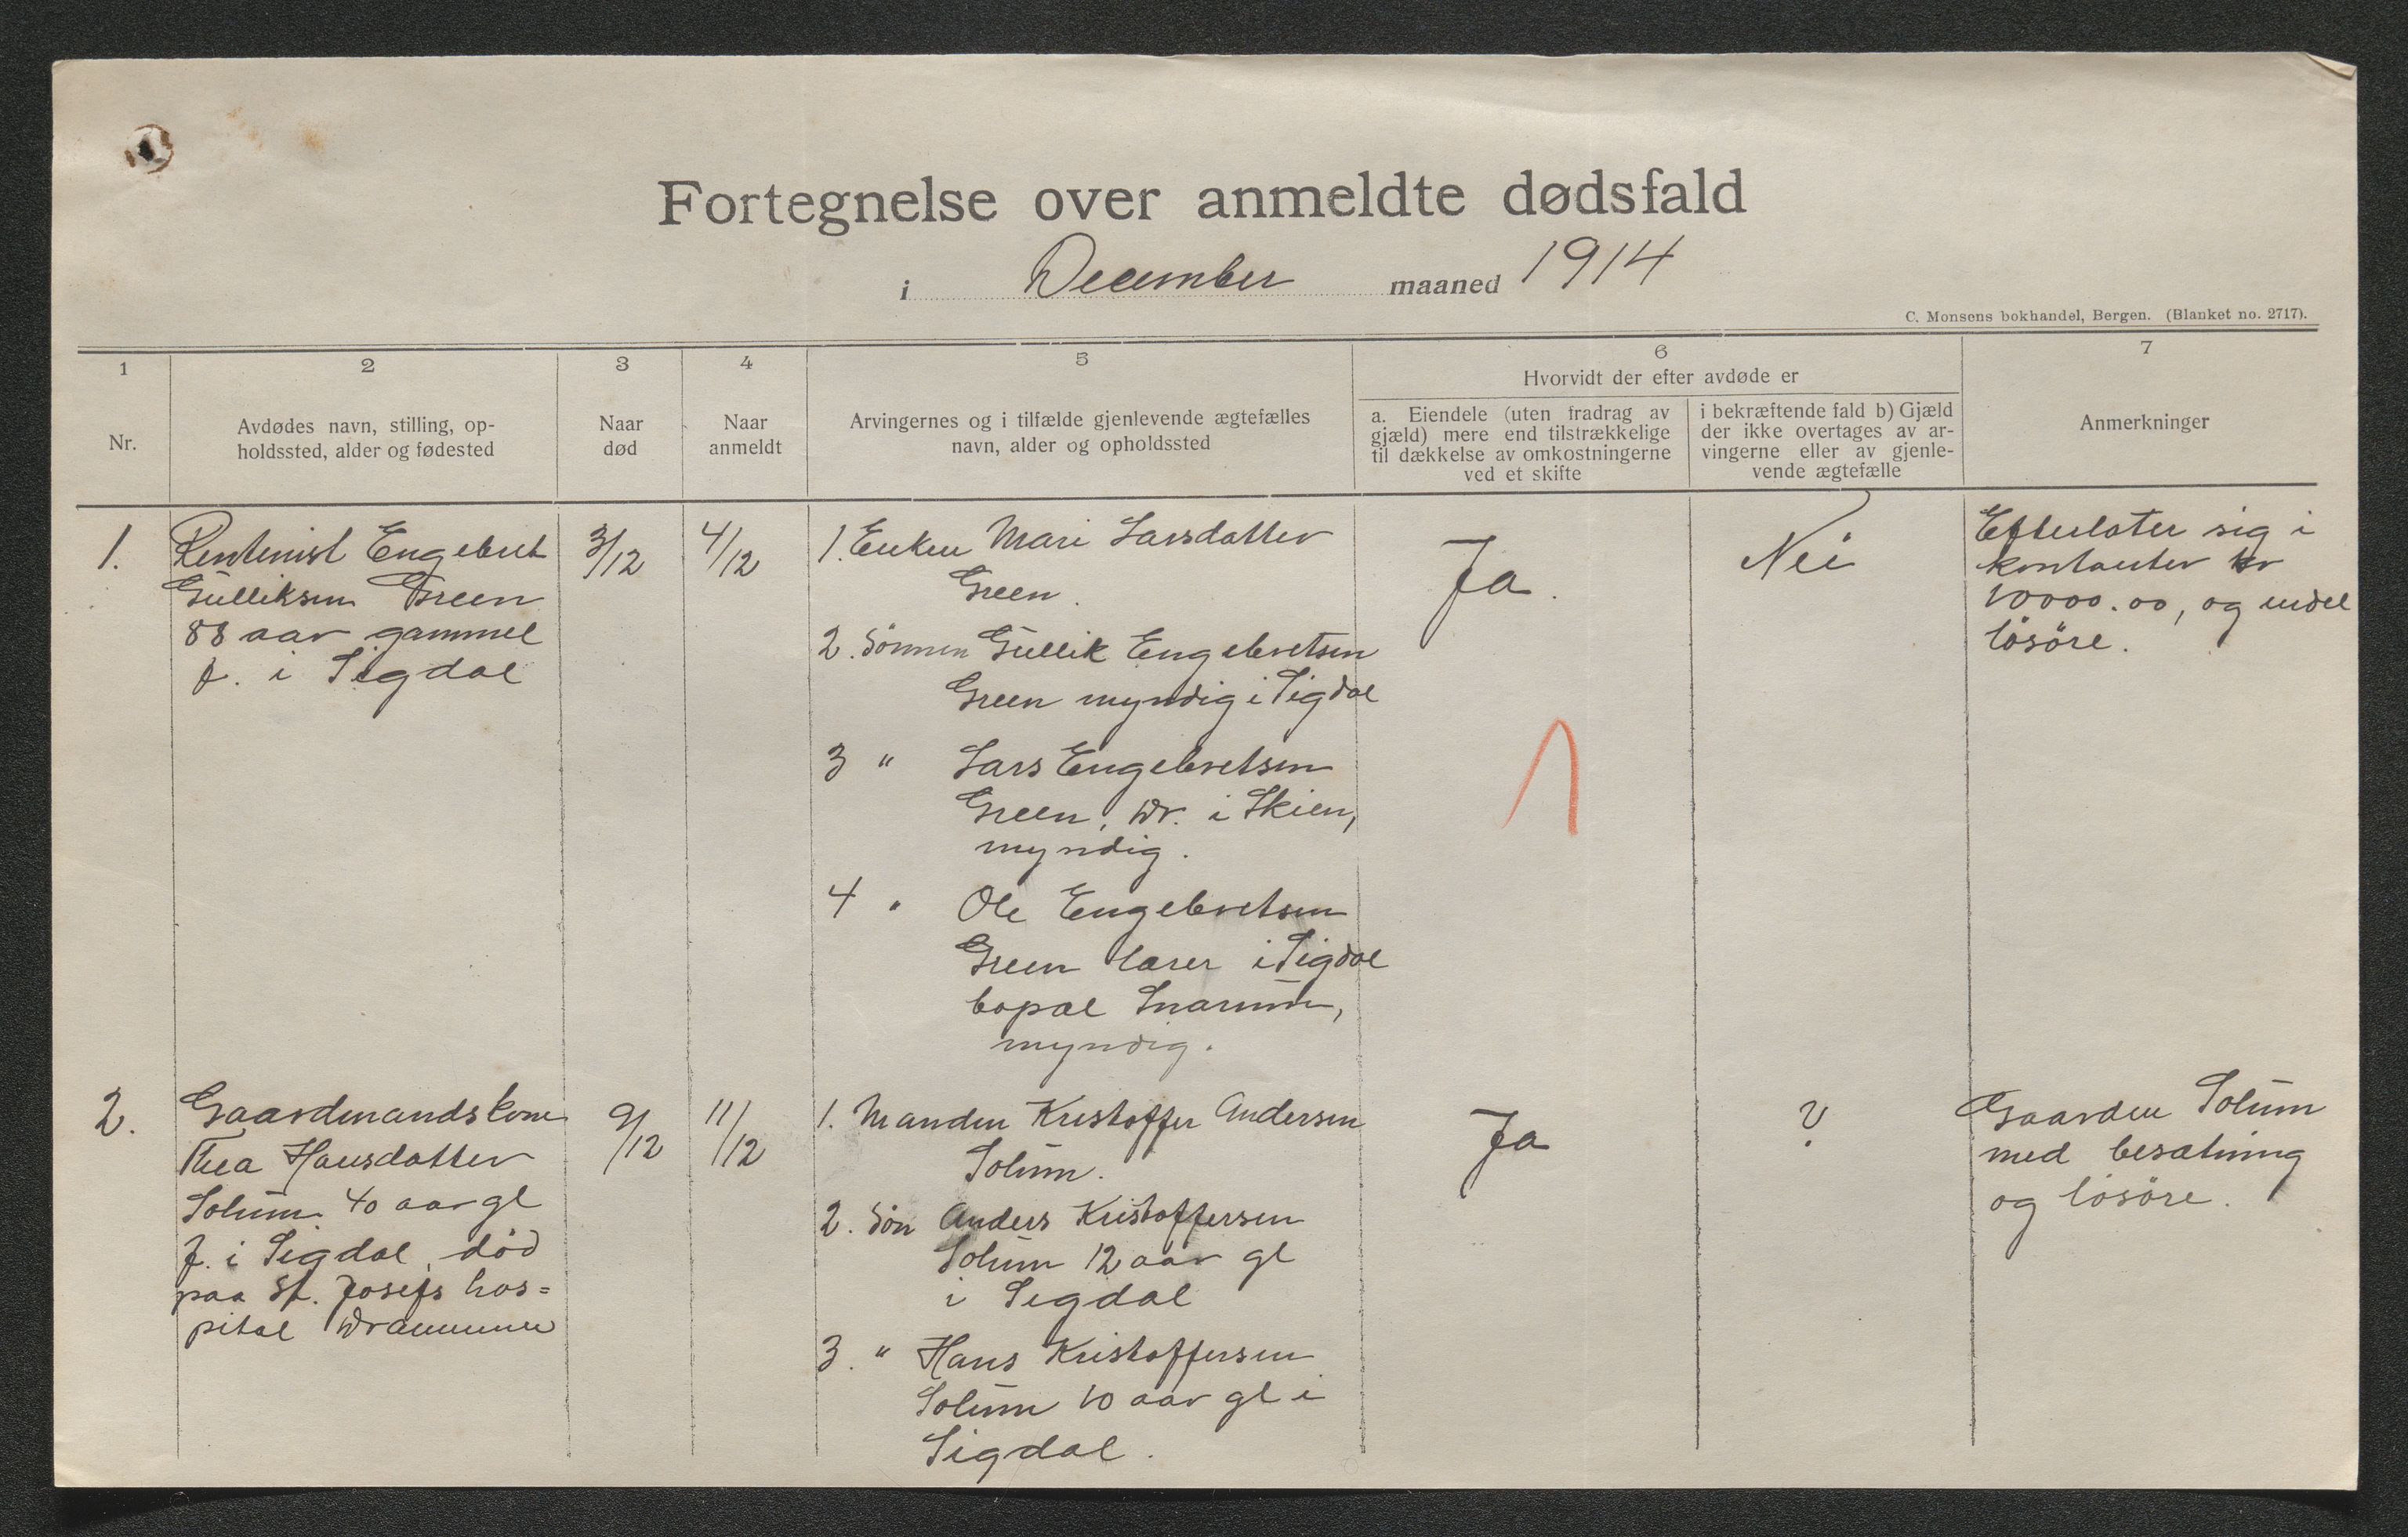 Fortegnelse over anmeldte dødsfald
i December maaned 1914
C. Monsens bokhandel, Bergen. (Blanket no. 2717).
1
Nr.
2
Avdødes navn, stilling, op-
holdssted, alder og fødested
3
Naar
død
4
Naar
anmeldt
5
Arvingernes og i tilfælde gjenlevende ægtefælles
navn, alder og opholdssted
6
Hvorvidt der efter avdøde er
a. Eiendele (uten fradrag av
gjæld) mere end tilstrækkelige
til dækkelse av omkostningerne
ved et skifte
i bekræftende fald b) Gjæld
der ikke overtages av ar-
vingerne eller av gjenle-
vende ægtefælle
7
Anmerkninger
1.
Rentenist Engebret
Gulliksen Green
88 aar gammel
f. i Sigdal
3/12
4/12
1. Enken Mari Larsdatter
Green.
2. Sønnen Gullik Engebretsen
Green myndig i Sigdal
3 " Lars Engebretsen
Green, Dr. i Skien,
myndig.
4 " Ole Engebretsen
Green lærer i Sigdal
bopæl Snarum,
myndig.
Ja.
Nei
Efterlater sig i
kontanter kr
10000.00, og endel
løsøre.
2.
Gaardmandskone
Thea Hansdatter
Solum 40 aar gl
f. i Sigdal, død
paa St. Josefs hos=
pital Drammen
9/12
11/12
1. Manden Kristoffer Andersen
Solum.
2. Søn Anders Kristoffersen
Solum 12 aar gl
i Sigdal
3. " Hans Kristoffersen
Solum 10 aar gl i
Sigdal.
Ja
?
Gaarden Solum
med besætning
og løsøre.